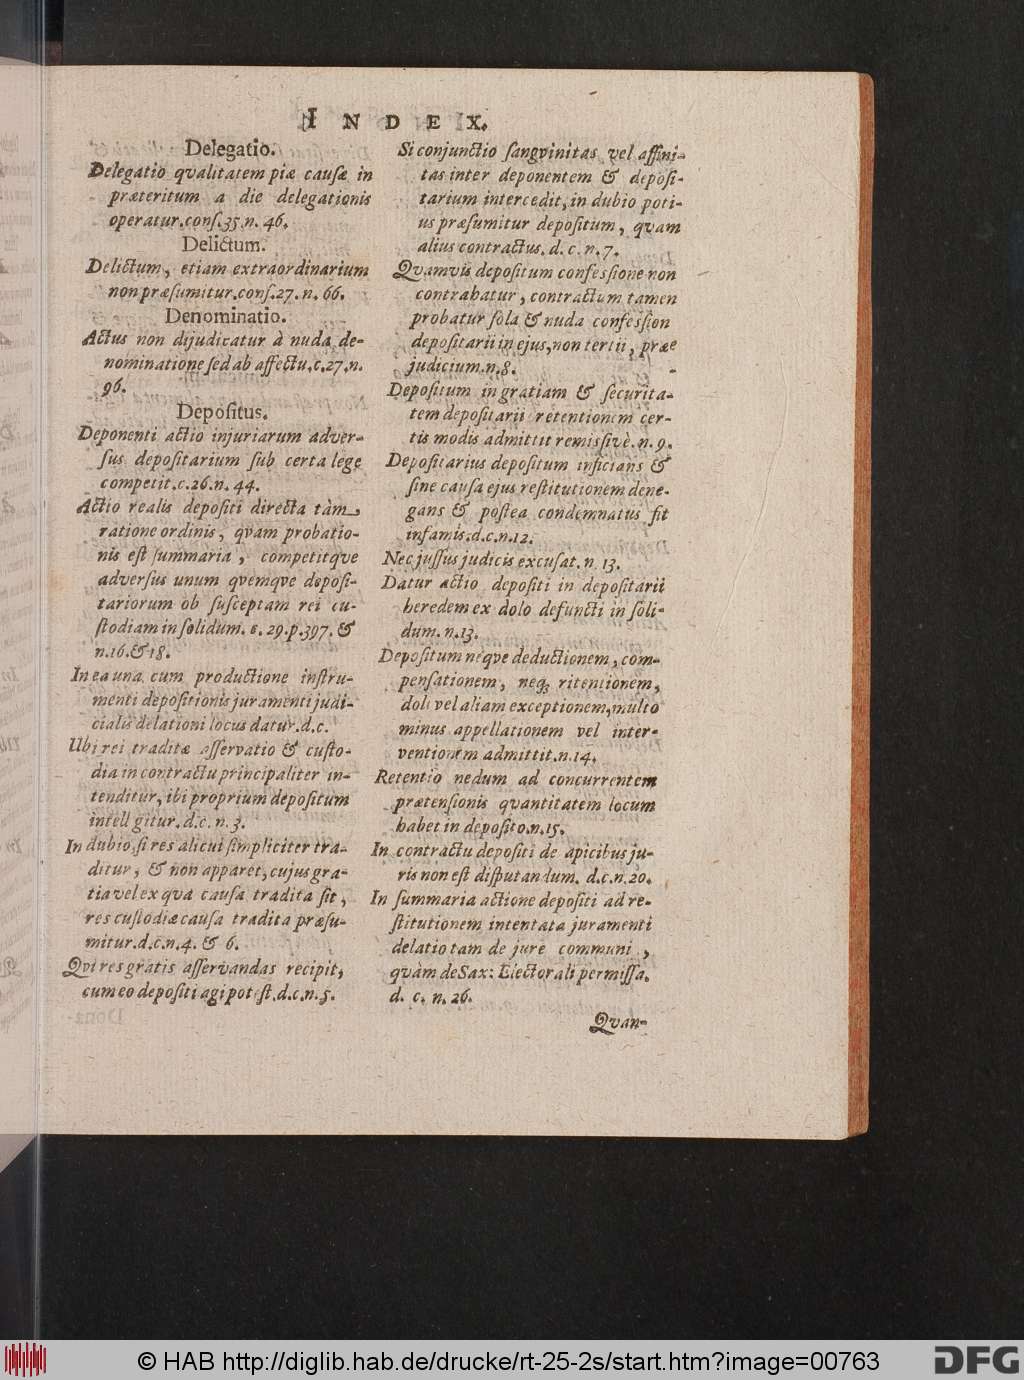 INDEX.
Delegatio.
Delegatio qvalitatem piæ causæ in
præteritum a die delegationis
operatur. cons. 35. n. 46.
Delictum.
Delictum, etiam extraordinarium
non præsumitur. cons. 27. n. 66.
Denominatio.
Actus non dijudicatur à nuda de-
nominatione sed ab affectu. c. 27. n.
96.
Depositus.
Deponenti actio injuriarum adver-
sus depositarium sub certa lege
competit. c. 26. n. 44.
Actio realis depositi directa tàm
ratione ordinis, qvam probatio-
nis est summaria, competitqve
adversus unum qvemqve deposi-
tariorum ob susceptam rei cu-
stodiam in solidum. c. 29. p. 397. &
n. 16. & 18.
In ea una cum productione instru-
menti depositionis juramenti judi-
cialis delationi locus datur. d. c.
Ubi rei traditæ asservatio & custo-
dia in contractu principaliter in-
tenditur, ibi proprium depositum
intell gitur. d. c. n. 3.
In dubio, si res alicui simpliciter tra-
ditur, & non apparet, cujus gra-
tia vel ex qva causa tradita sit,
res custodiæ causa tradita præsu-
mitur. d. c. n. 4. & 6.
Qvi res gratis asservandas recipit,
cum eo depositi agi potest. d. c. n. 5.
Si conjunctio sangvinitas vel affini-
tas inter deponentem & deposi-
tarium intercedit, in dubio poti-
us præsumitur depositum, qvam
alius contractus. d. c. n. 7.
Qvamvis depositum confessione non
contrahatur, contractum tamen
probatur sola & nuda confession
depositarii in ejus, non tertii, præe
judicium. n. 8.
Depositum in gratiam & securita-
tem depositarii retentionem cer-
tis modis admittit remissivè. n. 9.
Depositarius depositum inficians &
sine causa ejus restitutionem dene-
gans & postea condemnatus fit
infamis. d. c. n. 12.
Nec jussus judicis excusat. n. 13.
Datur actio depositi in depositarii
heredem ex dolo defuncti in soli-
dum. n. 13.
Depositum neqve deductionem, com-
pensationem, neq; ritentionem,
doli vel aliam exceptionem, multo
minus appellationem vel inter-
ventionem admittit. n. 14.
Retentio nedum ad concurrentem
prætensionis qvantitatem locum
habet in deposito. n. 15.
In contractu depositi de apicibus ju-
ris non est disputandum. d. c. n. 20.
In summaria actione depositi ad re-
stitutionem intentata juramenti
delatio tam de jure communi,
qvàm de Sax: Electorali permissa.
d. c. n. 26.
Qvan-
© HAB http://diglib.hab.de/drucke/rt-25-2s/start.htm?image=00763
DFG